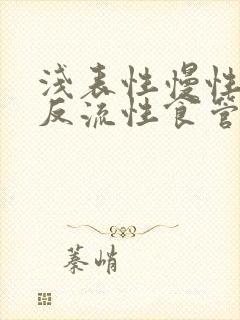 浅表性慢性
反流性食管
蓁峭